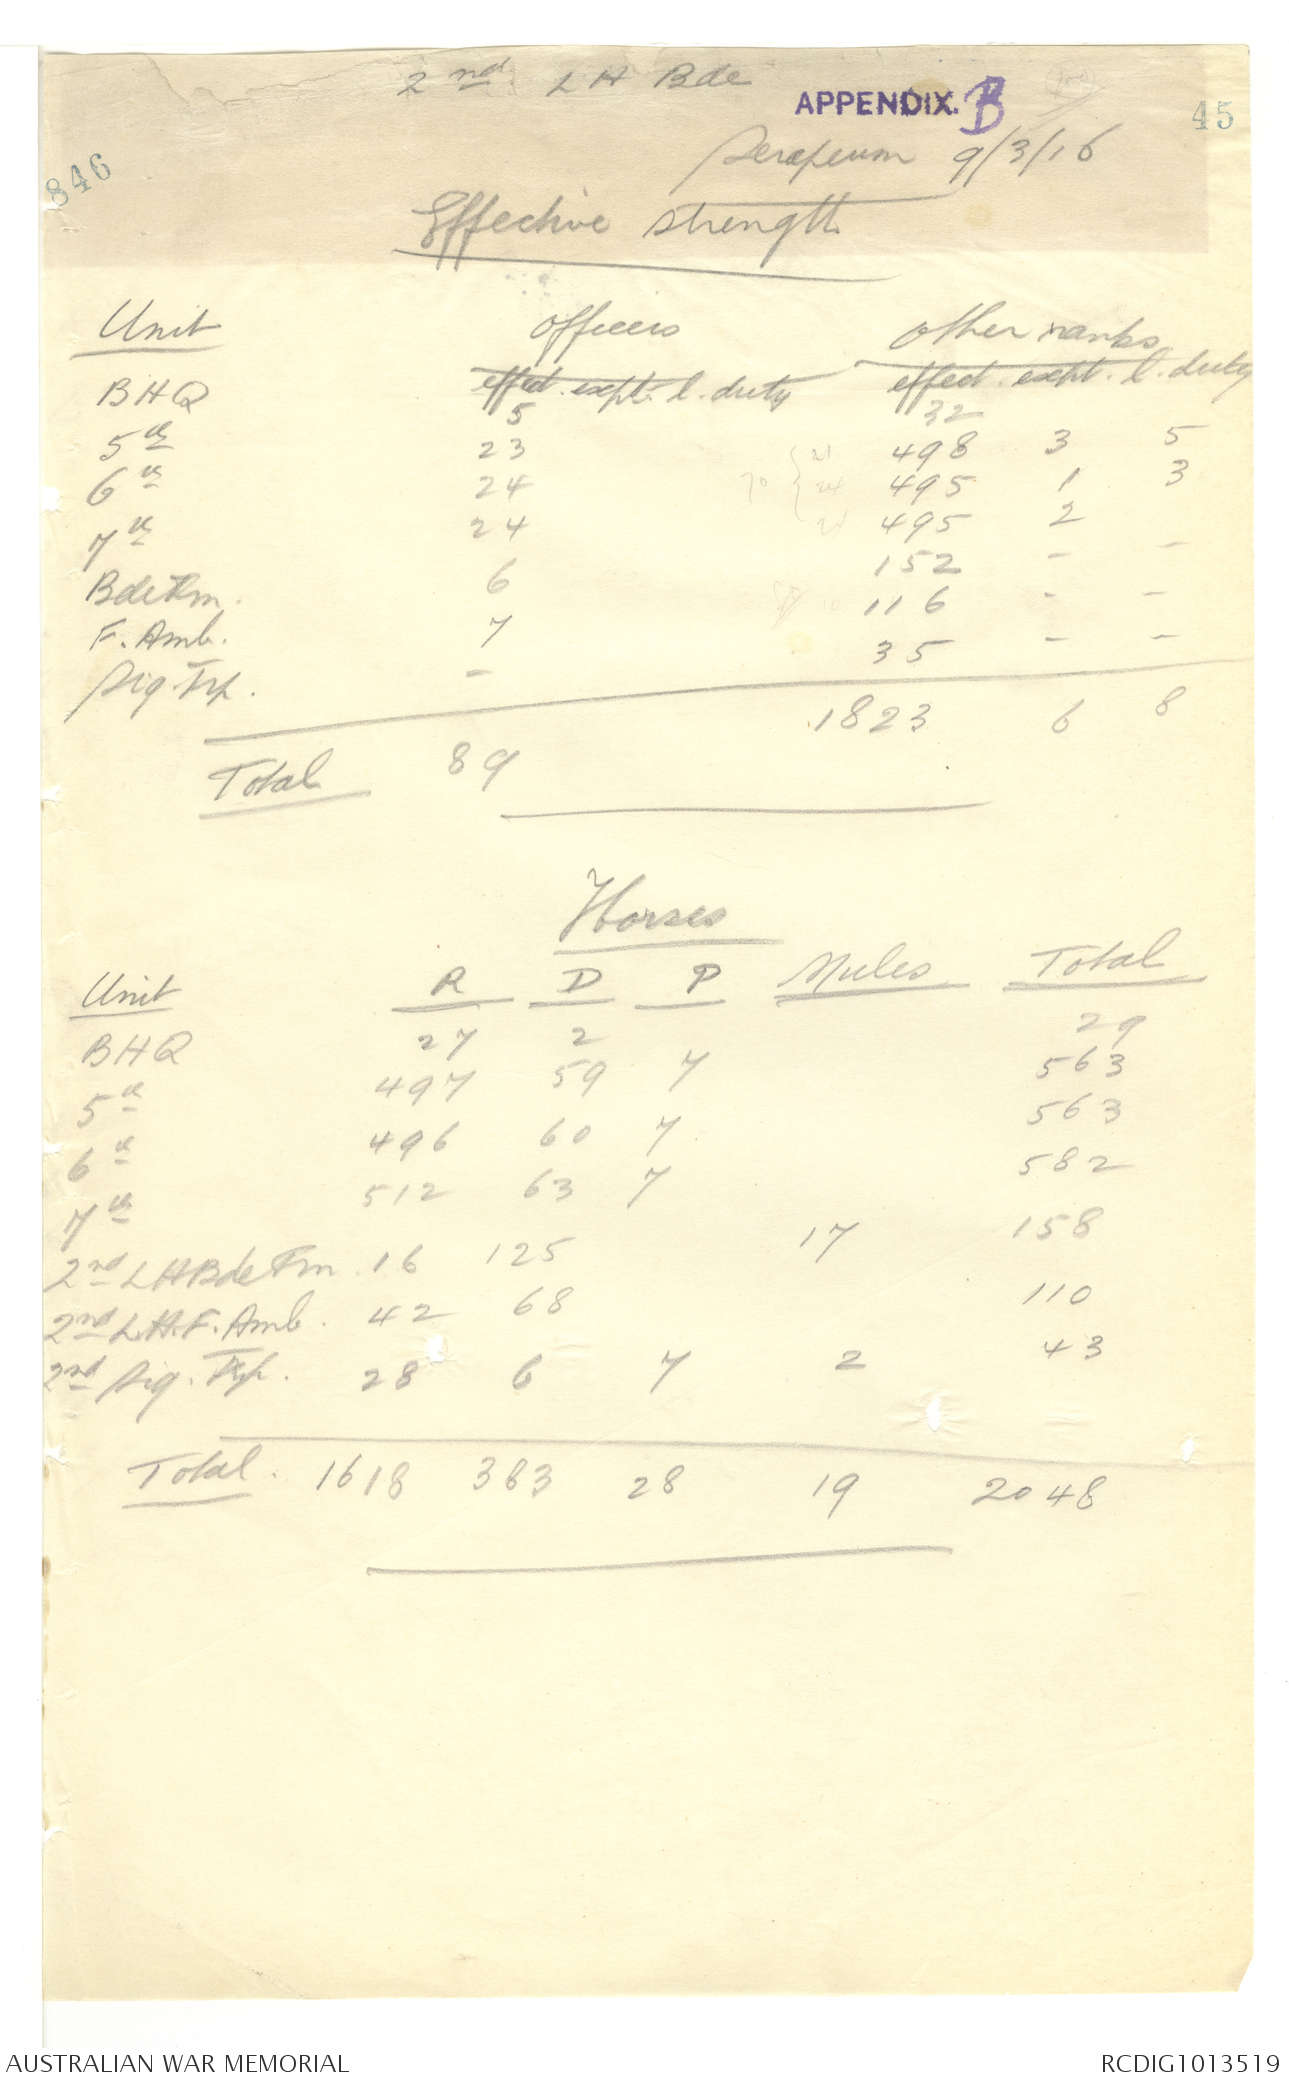 2nd LH Bde
APPENDIX. B
45
846
Serapeum 9/3/16
Effective strength
Unit Officers Other ranks
effect. exspt. l. duty effect. exspt. l. duty
BHQ 5 32
5th 23 498 3 5
6th 24 495 1 3
7th 24 495 2 -
Bde Trn. 6 152 - -
F. Amb. 7 116 - -
Sig. Trp. - 35 - -
Total 89 1823 6 8
Horses
Unit R D P Mules Total
BHQ 27 2 29
5th 497 59 7 563
6th 496 60 7 563
7th 512 63 7 582
2nd LH Bde Trn 16 125 17 158
2nd L.H. F. Amb. 42 68 110
2nd Sig. Trp. 28 6 7 2 43
Total. 1618 383 28 19 2048
AUSTRALIAN WAR MEMORIAL RCDIG1013519